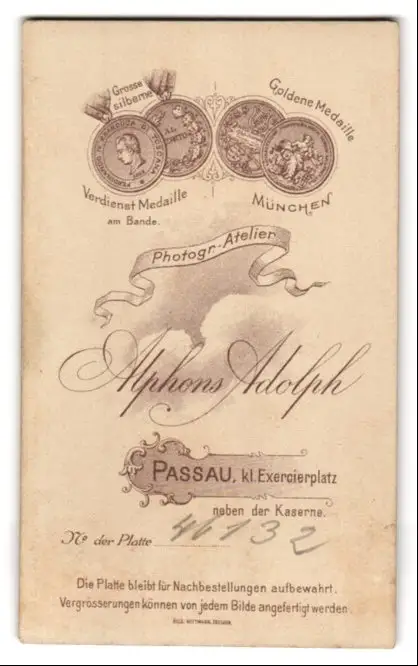 Grosse
silberne
Goldene Medaille
FERDINANDO IV GRANDUCA DI TOSCANA
AL
MERITO
Verdienst Medaille
am Bande.
MÜNCHEN
Photogr.-Atelier
Alphons Adolph
PASSAU, kl. Exercierplatz
neben der Kaserne.
No der Platte 46132
Die Platte bleibt für Nachbestellungen aufbewahrt.
Vergrösserungen können von jedem Bilde angefertigt werden